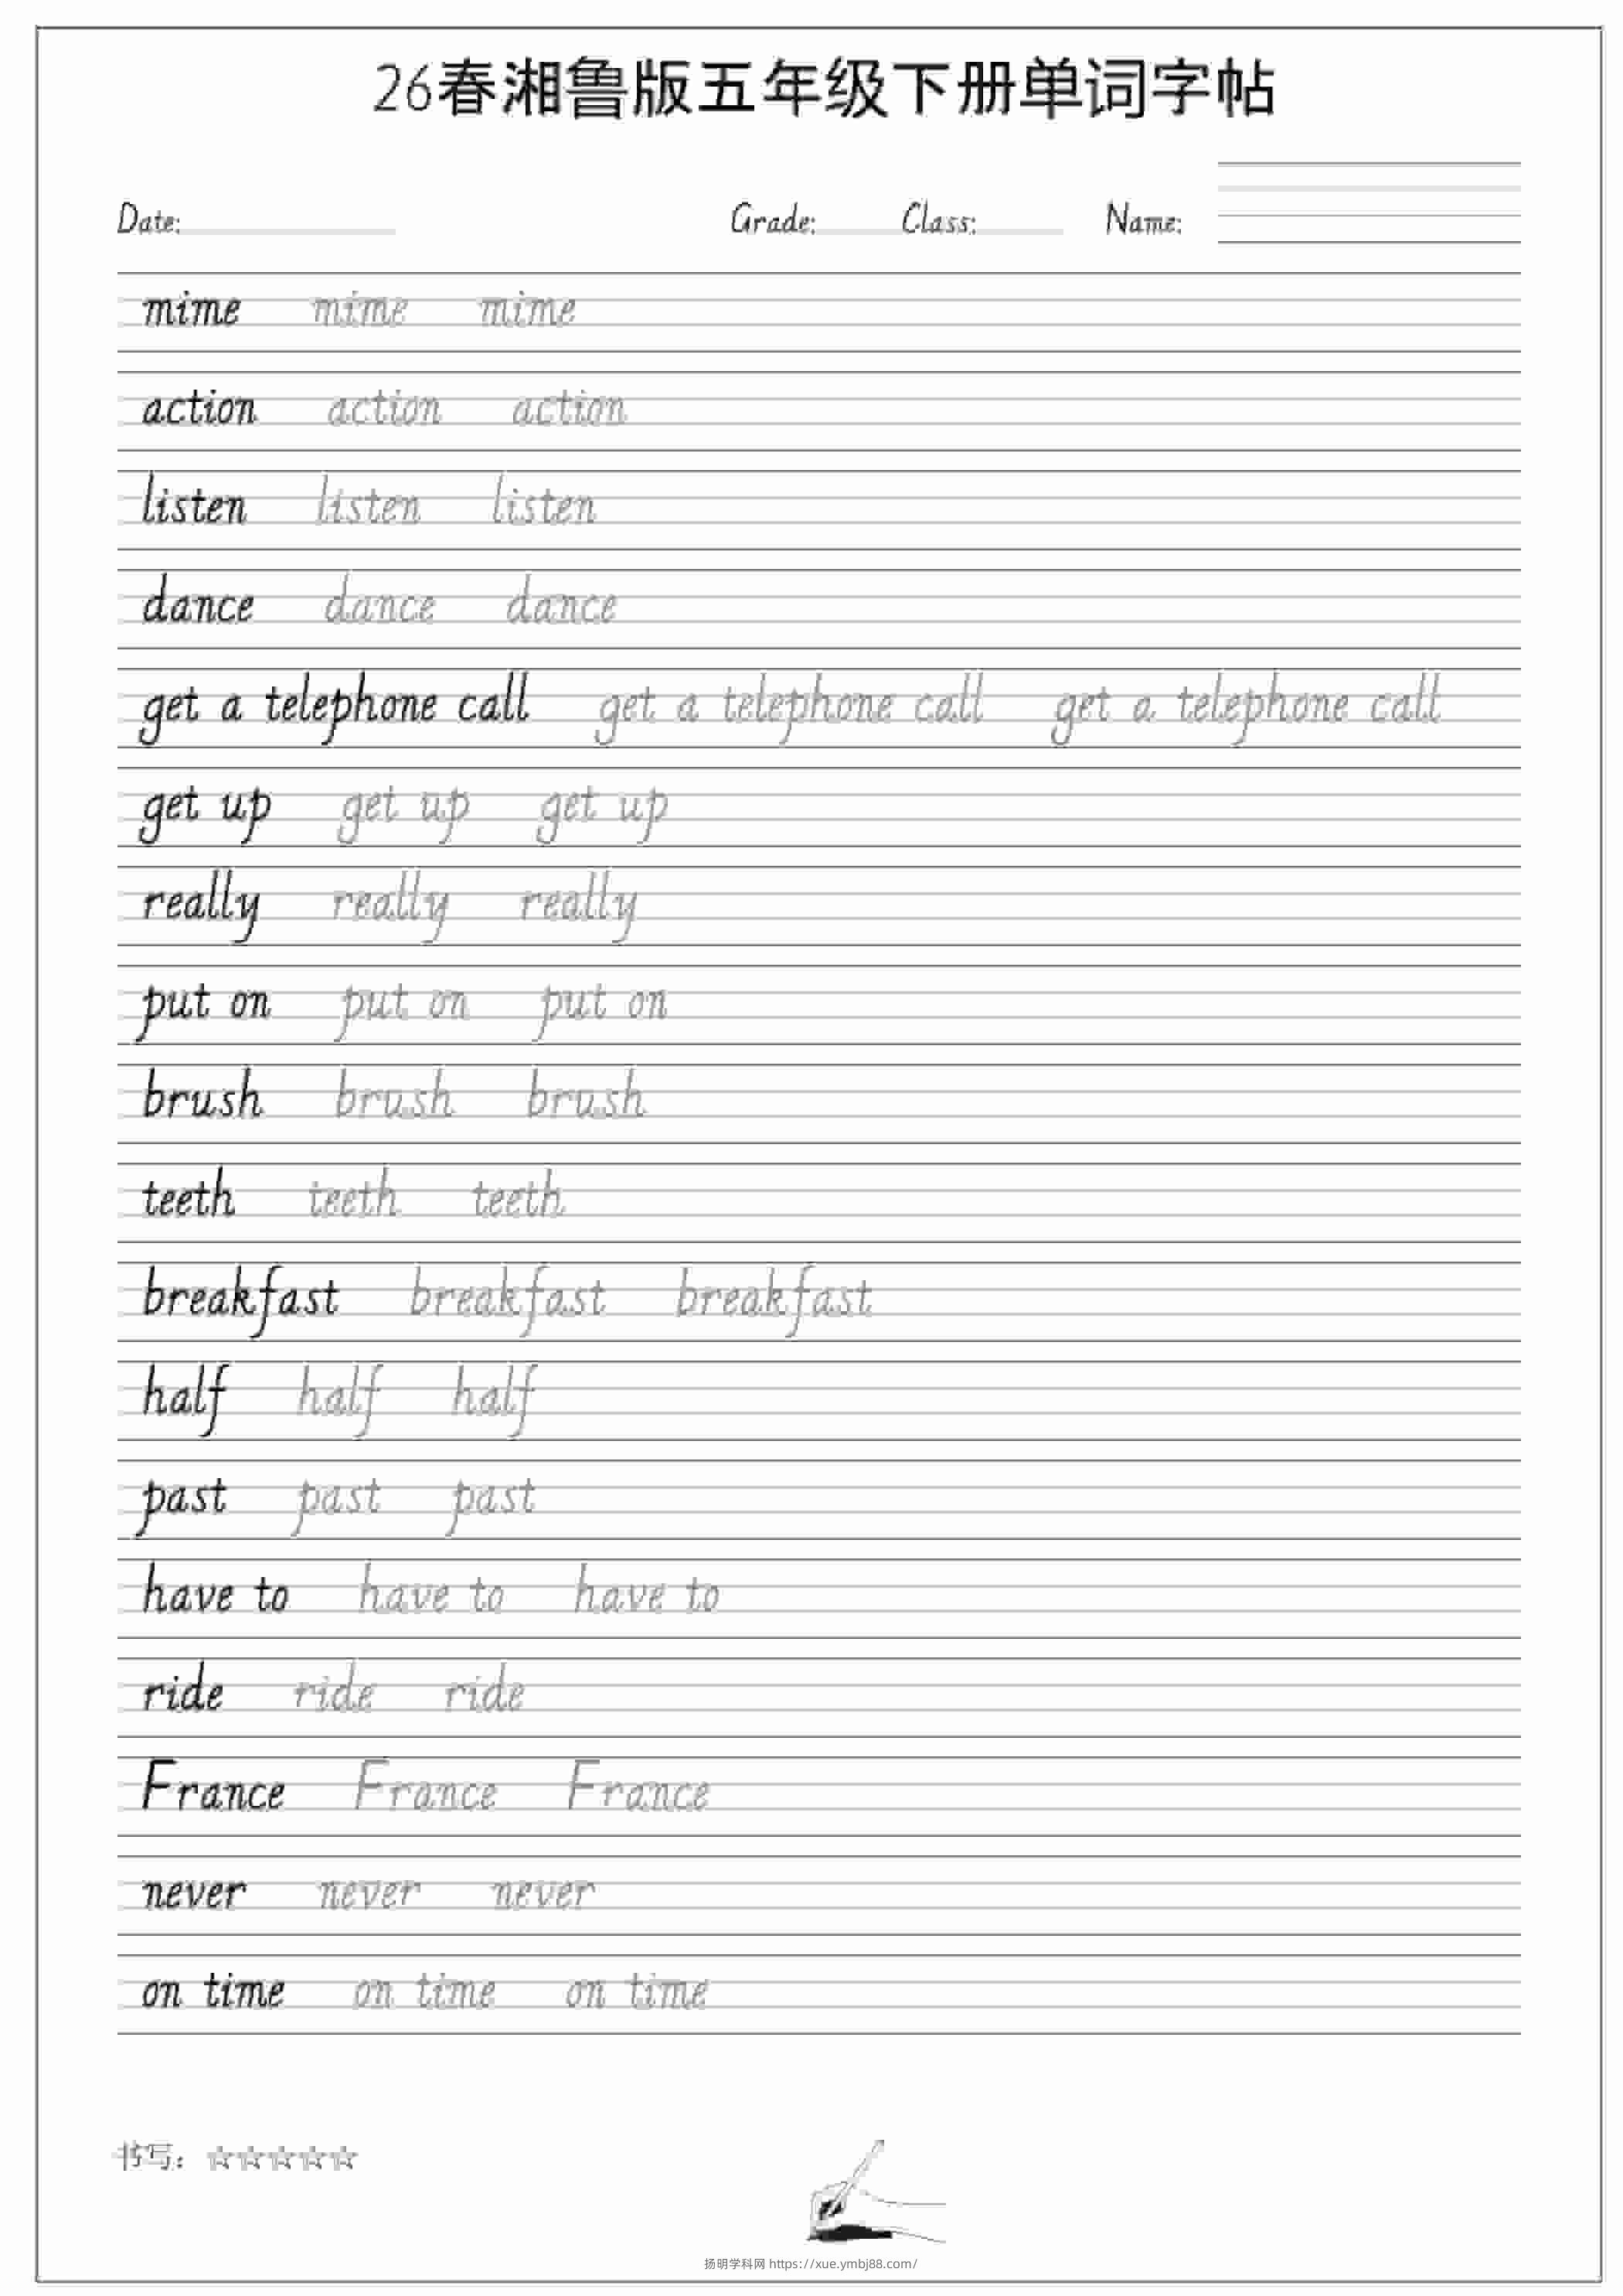 26春湘鲁版五年级下册单词字帖
Date: Grade: Class: Name:
mime mime mime
action action action
listen listen listen
dance dance dance
get a telephone call get a telephone call get a telephone call
get up get up get up
really really really
put on put on put on
brush brush brush
teeth teeth teeth
breakfast breakfast breakfast
half half half
past past past
have to have to have to
ride ride ride
France France France
never never never
on time on time on time
书写：☆☆☆☆☆
扬明学科网 https://xue.ymbj88.com/